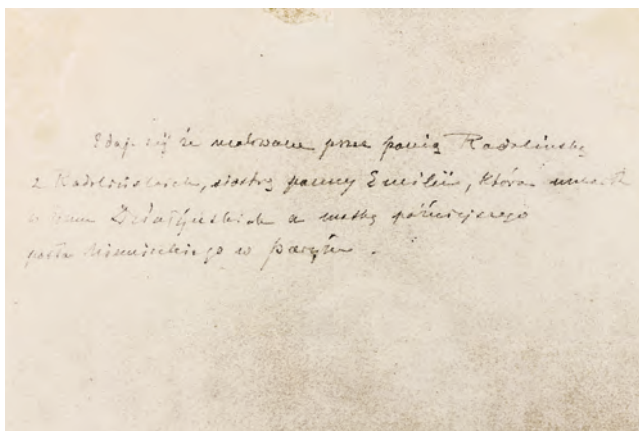 Zdaje się że malowane przez panią Radolińską
z Radolińskich, siostrę panny Emilii, która umarła
w domu Działyńskich a matkę późniejszego
posła Niemieckiego w Paryżu.